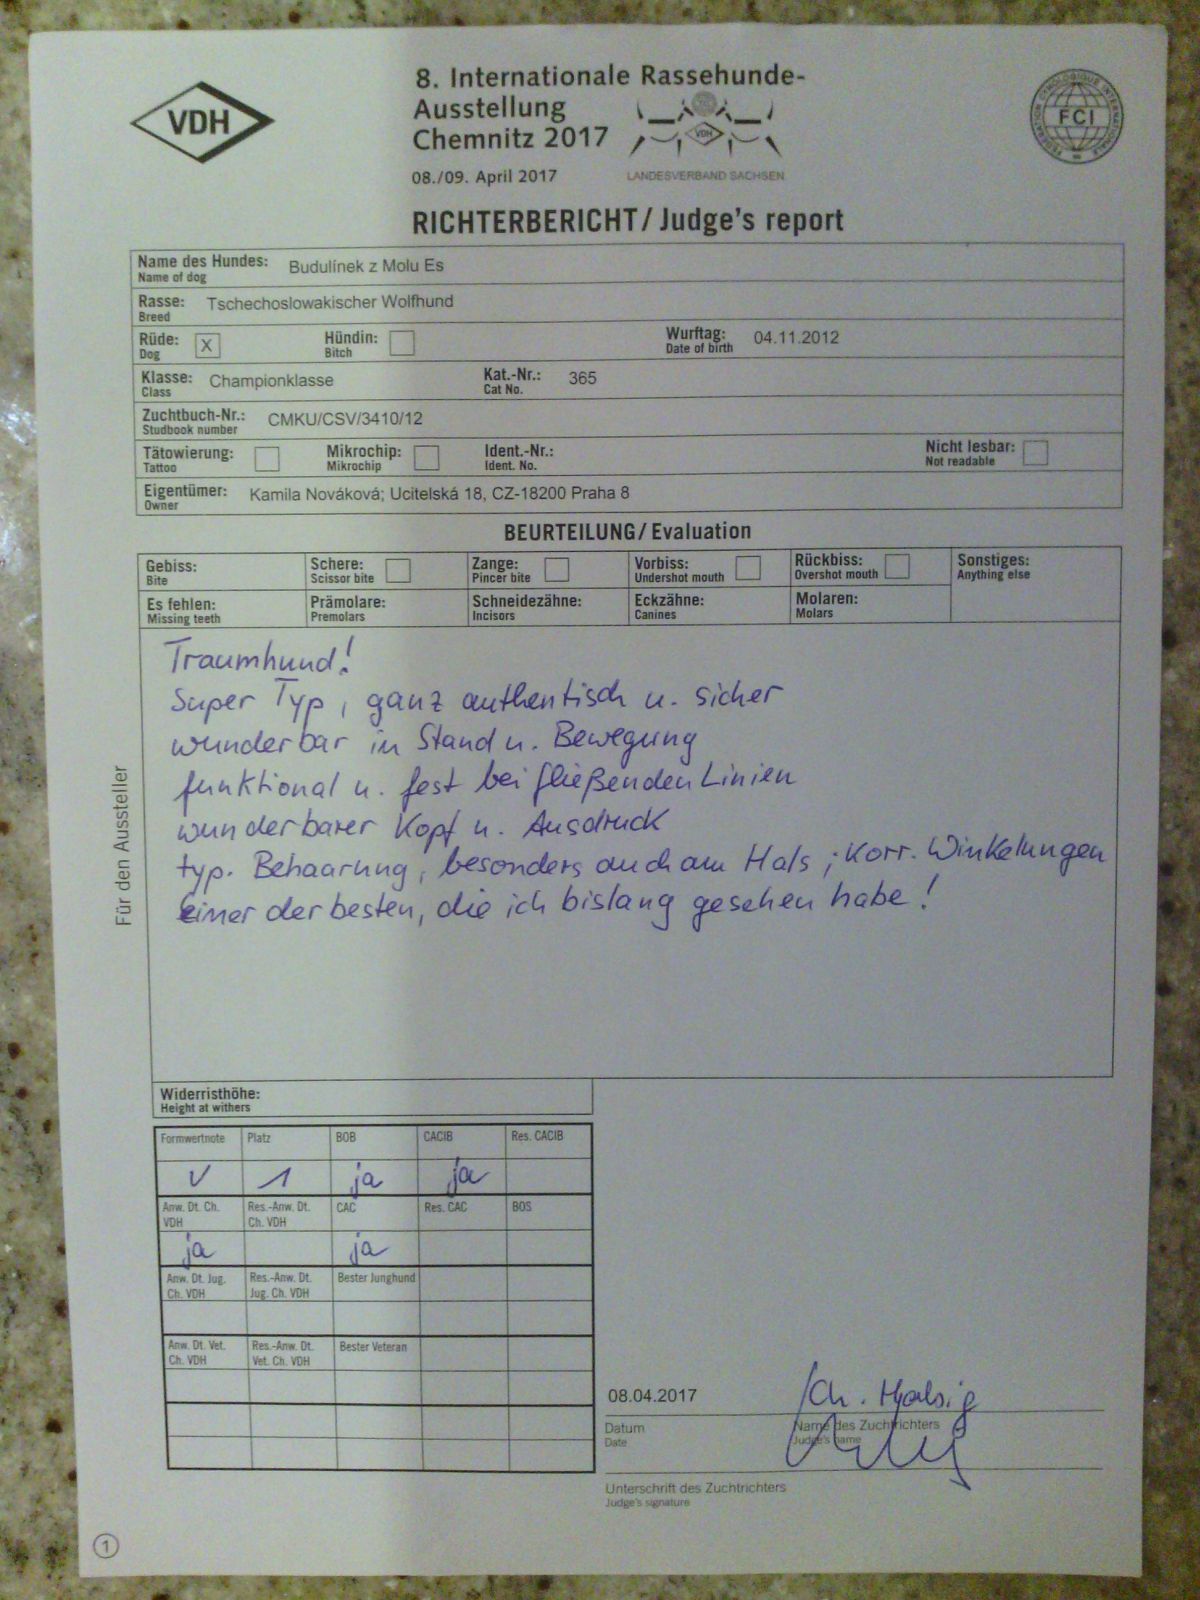 VDH
8. Internationale Rassehunde-
Ausstellung
Chemnitz 2017
08./09. April 2017
VDH
LANDESVERBAND SACHSEN
FEDERATION CYNOLOGIQUE INTERNATIONALE
FCI
RICHTERBERICHT/Judge's report
Name des Hundes: Budulínek z Molu Es
Name of dog
Rasse: Tschechoslowakischer Wolfhund
Breed
Rüde: X Hündin: Wurftag: 04.11.2012
Dog Bitch Date of birth
Klasse: Championklasse Kat.-Nr.: 365
Class Cat No.
Zuchtbuch-Nr.: CMKU/CSV/3410/12
Studbook number
Tätowierung: Mikrochip: Ident.-Nr.: Nicht lesbar:
Tattoo Mikrochip Ident. No. Not readable
Eigentümer: Kamila Nováková; Ucitelská 18, CZ-18200 Praha 8
Owner
BEURTEILUNG/Evaluation
Gebiss: Schere: Zange: Vorbiss: Rückbiss: Sonstiges:
Bite Scissor bite Pincer bite Undershot mouth Overshot mouth Anything else
Es fehlen: Prämolare: Schneidezähne: Eckzähne: Molaren:
Missing teeth Premolars Incisors Canines Molars
Traumhund!
Super Typ, ganz authentisch u. sicher
wunderbar in Stand u. Bewegung
funktional u. fest bei fließenden Linien
wunderbarer Kopf u. Ausdruck
typ. Behaarung, besonders auch am Hals; korr. Winkelungen
Einer der besten, die ich bislang gesehen habe!
Für den Aussteller
Widerristhöhe:
Height at withers
Formwertnote Platz BOB CACIB Res. CACIB
V 1 ja ja
Anw. Dt. Ch. Res.-Anw. Dt. CAC Res. CAC BOS
VDH Ch. VDH
ja ja
Anw. Dt. Jug. Res.-Anw. Dt. Bester Junghund
Ch. VDH Jug. Ch. VDH
Anw. Dt. Vet. Res.-Anw. Dt. Bester Veteran
Ch. VDH Vet. Ch. VDH
08.04.2017 Ch.
Datum Name des Zuchtrichters
Date Judge's name
Unterschrift des Zuchtrichters
Judge's signature
1